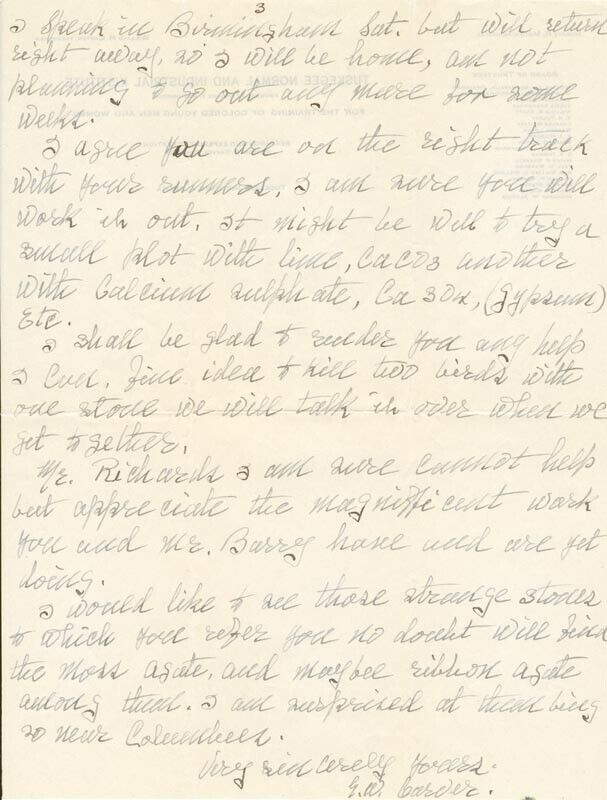 3
I speak in Birmingham Sat. but will return
right away, so I will be home, am not
planning to go out any more for some
weeks.
I agree you are on the right track
with your runners. I am sure you will
work it out. It might be well to try a
small plot with lime, CaCO3 another
with Calcium sulphate, Ca SO4, (Gypsum)
Etc.
I shall be glad to render you any help
I can. Fine idea to kill two birds with
one stone we will talk it over when we
get together.
Mr. Richards I am sure cannot help
but appreciate the magnifficent work
you and Mr. Barry have and are yet
doing.
I would like to see those strange stones
to which you refer you no doubt will find
the moss agate, and maybee ribbon agate
among them. I am surprised at them being
so near Columbus.
Very sincerely yours.
G.W. Carver.
TUSKEGEE NORMAL AND INDUSTRIAL INSTITUTE
FOR THE TRAINING OF COLORED YOUNG MEN AND WOMEN